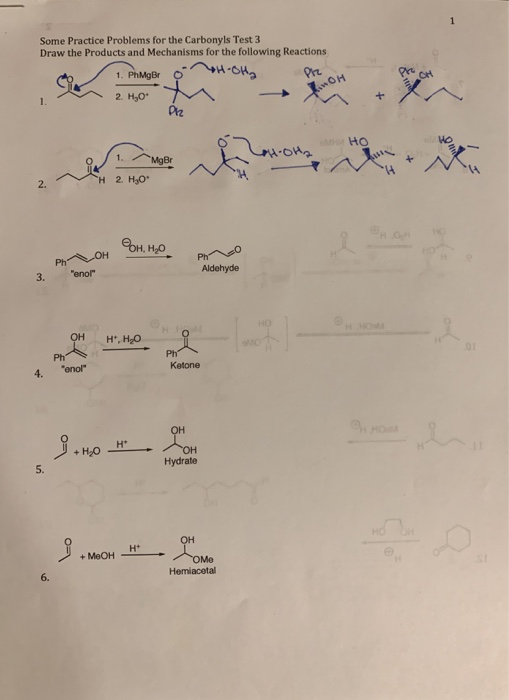 1
Some Practice Problems for the Carbonyls Test 3
Draw the Products and Mechanisms for the following Reactions
1. O 1. PhMgBr 2. H₃O⁺ O⁻ H-OH₂ Ph OH + Ph OH
2. O H 1. MgBr 2. H₃O⁺ O⁻ H H-OH₂ HO H + HO H
3. Ph OH "enol" ⊖OH, H₂O Ph O Aldehyde
4. OH Ph "enol" H⁺, H₂O O Ph Ketone
5. O + H₂O H⁺ OH OH Hydrate
6. O + MeOH H⁺ OH OMe Hemiacetal